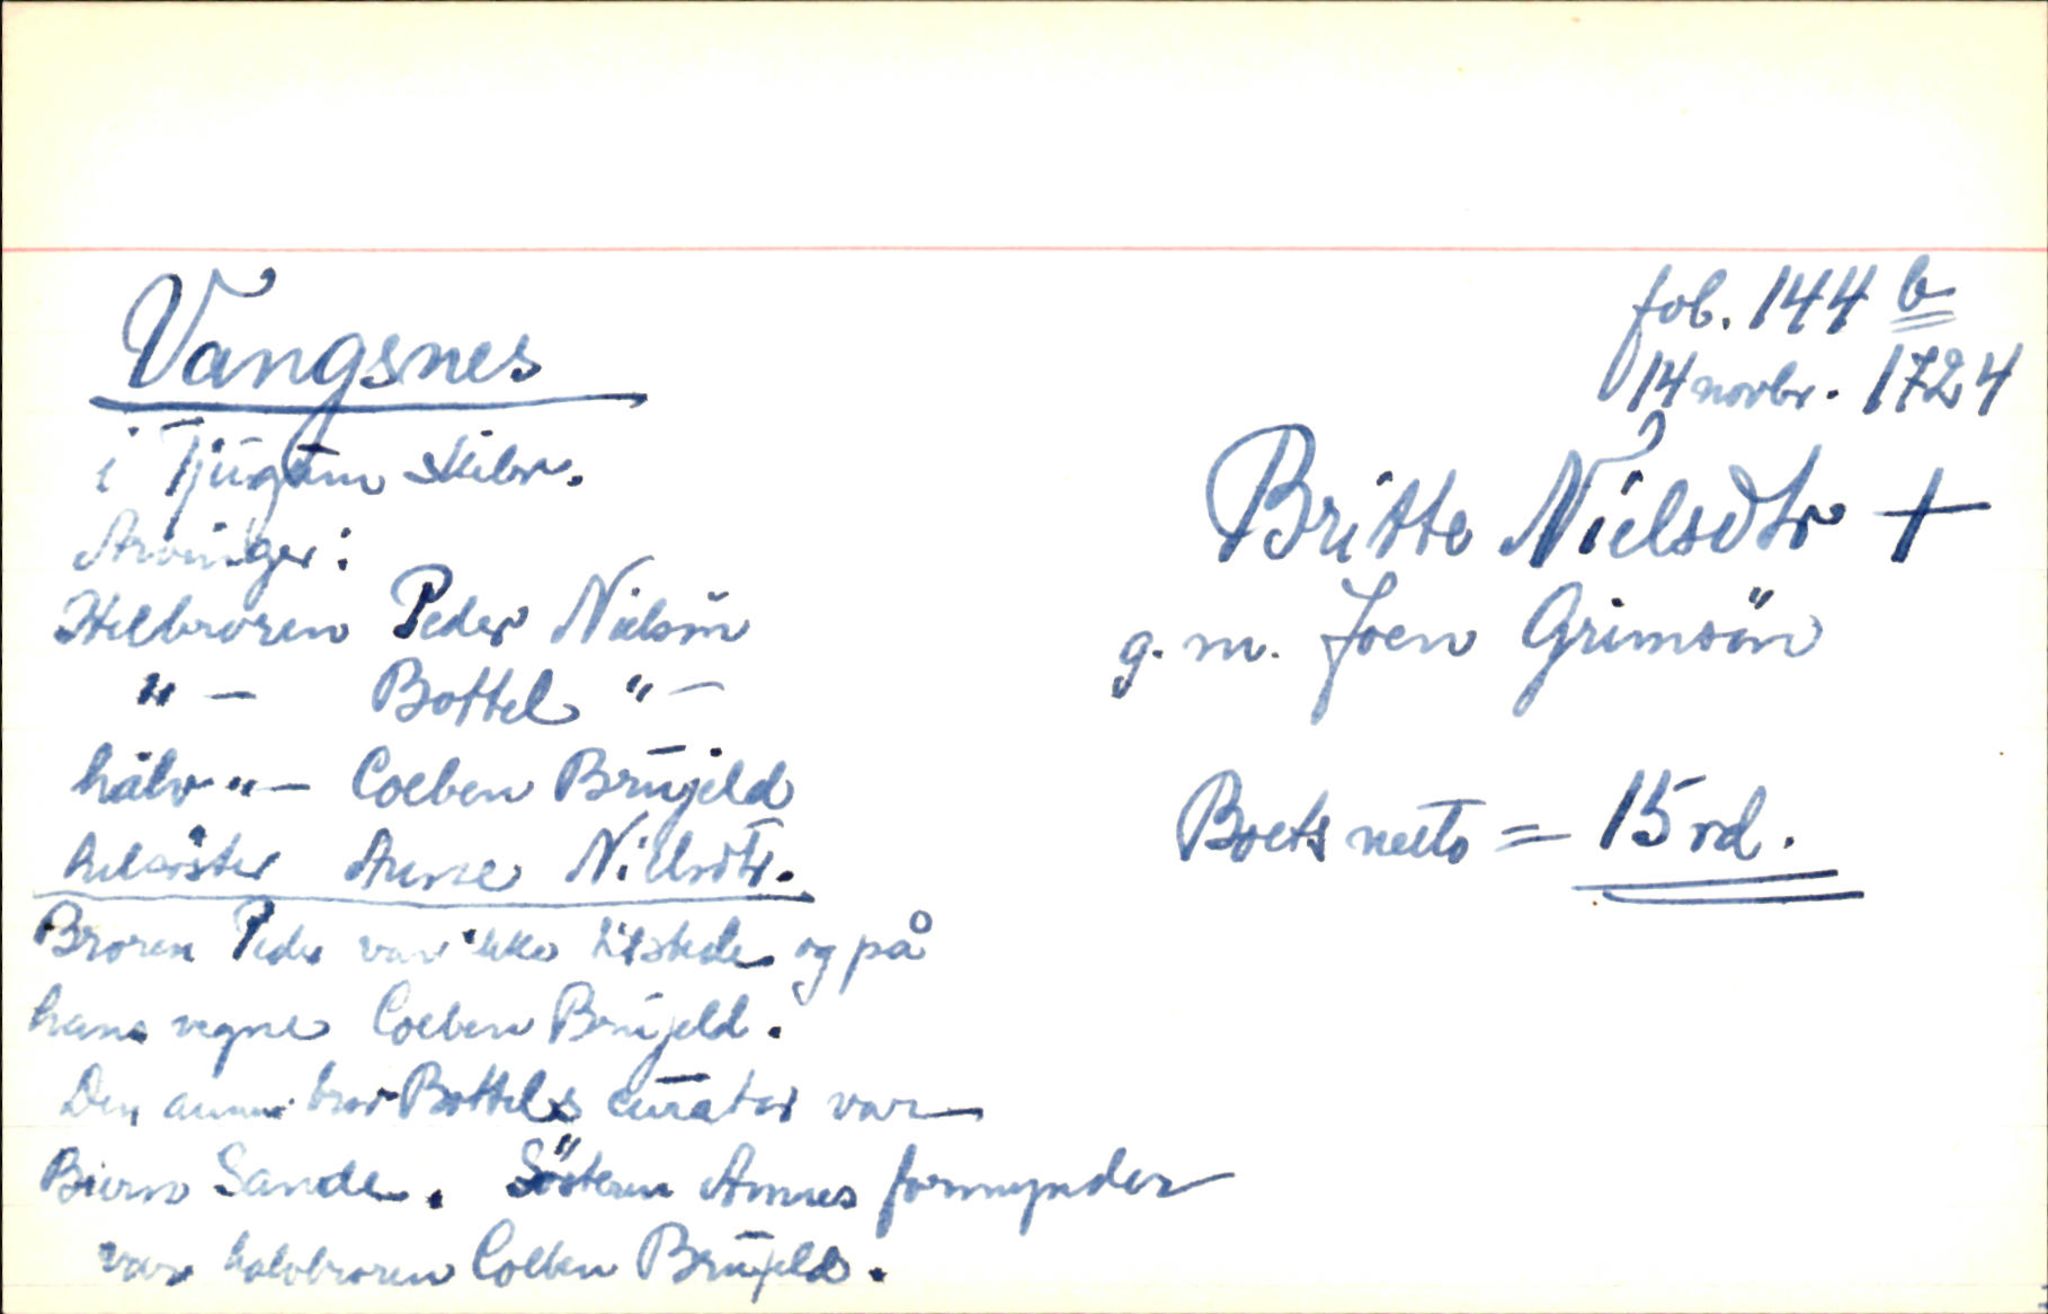 Vangsnes
i Tjugum skibr.
Arvinger:
Helbroren Peder Nielsön
"— Bottel "—
halv "— Colben Brujeld
helsöster Anne Nielsdtr.
Broren Peder var ikke tilstede og på
hans vegne Colben Brujeld.
Den annen bror Bottels curator var
Biørn Sande. Søsteren Annes formynder
var halvbroren Colben Brujeld.
fol. 144 b
14 novbr. 1724
Britte Nielsdtr +
g. m. Joen Grimsön
Boets netto = 15 rd.